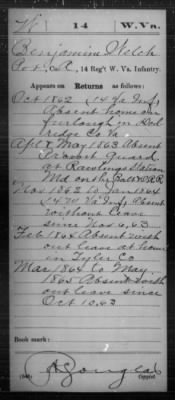 W | 14 | W.Va.
Benjamin Welch
Pvt, Co. A, 14 Reg't W. Va. Infantry.
Appears on Returns as follows:
Oct 1862 14 Va Inf,
Absent home on
furlough in Dod
tredge Co Va.
Apl & May 1863 Absent
Provost Guard
at Rawlings Station
Md on the B&O R.R.
Nov 1863 to Jan 1864
14 W Va Inf, Absent
without leave
since Nov 6, 63
Feb 1864 Absent with
out leave at home
in Tyler Co
Mar 1864 to May
1865 Absent with
out leave since
Oct 10, 63
Book mark:
Copyist.